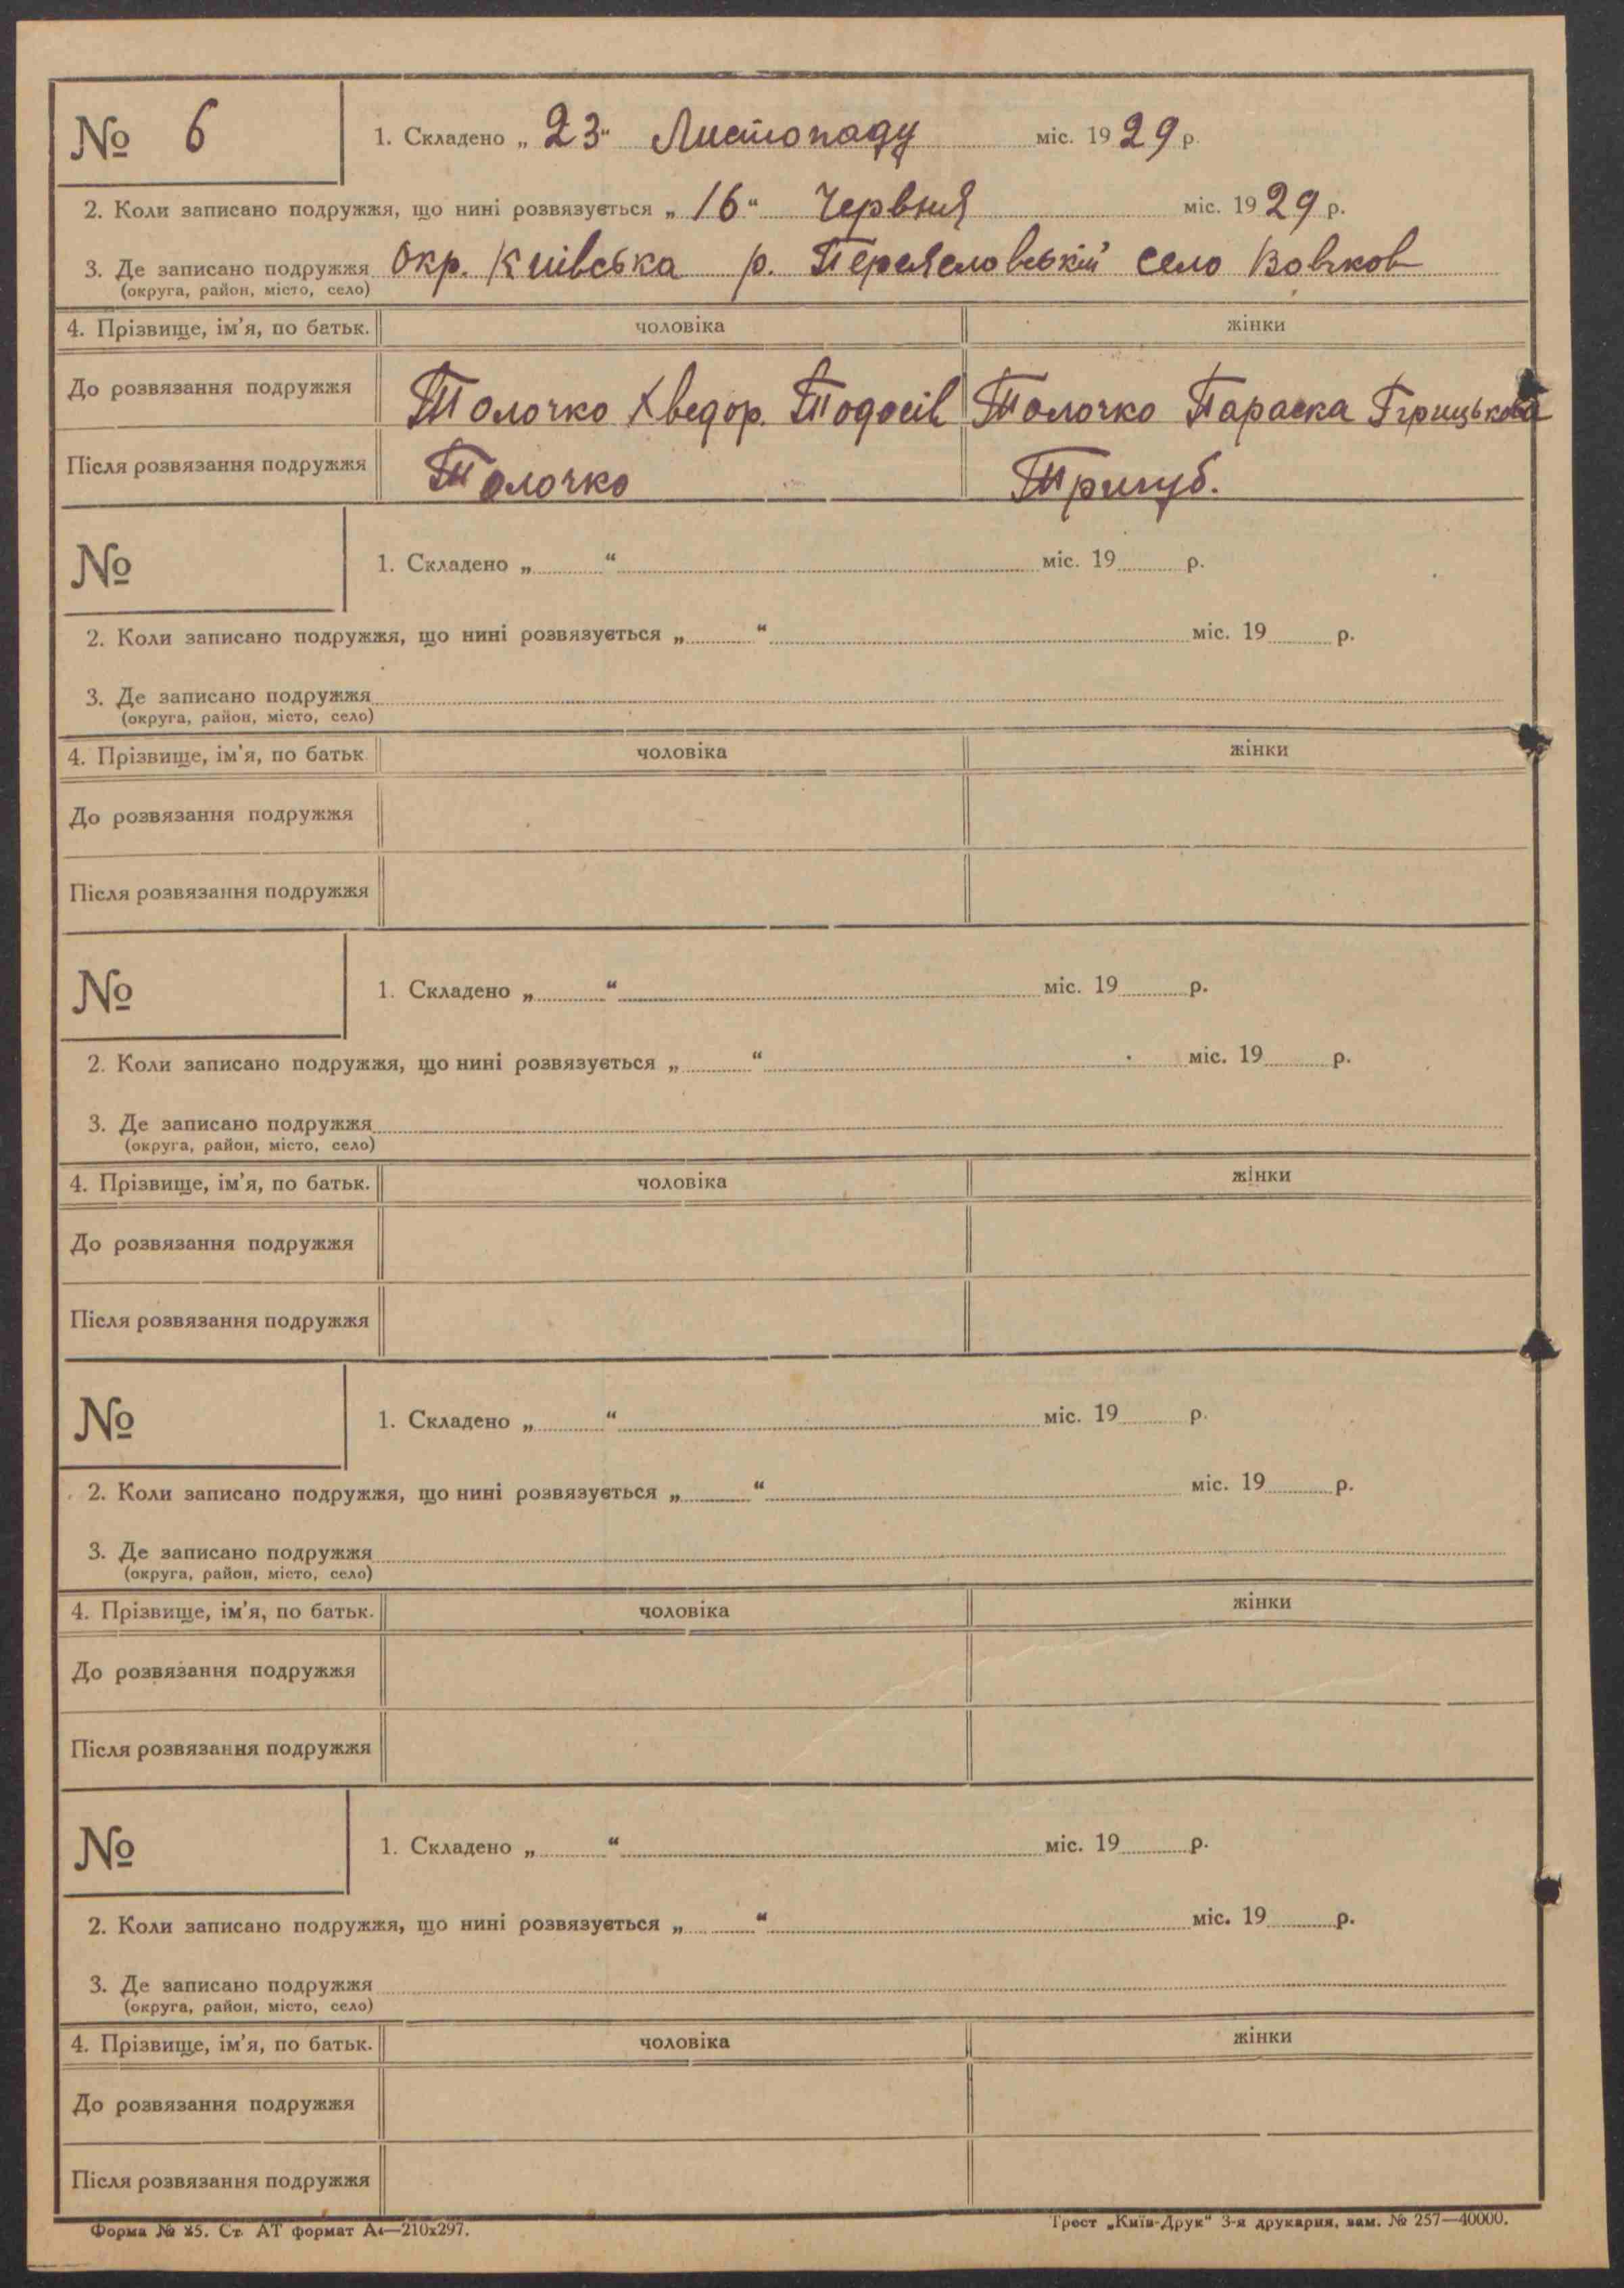 № 6
1. Складено „ 23 “ Листопаду міс. 1929 р.
2. Коли записано подружжя, що нині розвязується „ 16 “ Червня міс. 1929 р.
3. Де записано подружжя Окр. Київська р. Переяславській село Вовчков
(округа, район, місто, село)
4. Прізвище, ім'я, по батьк. чоловіка жінки
До розвязання подружжя Толочко Хведор. Тодосів Толочко Параска Ггрицькова
Після розвязання подружжя Толочко Тригуб.
№
1. Складено „ “ міс. 19 р.
2. Коли записано подружжя, що нині розвязується „ “ міс. 19 р.
3. Де записано подружжя
(округа, район, місто, село)
4. Прізвище, ім'я, по батьк чоловіка жінки
До розвязання подружжя
Після розвязання подружжя
№
1. Складено „ “ міс. 19 р.
2. Коли записано подружжя, що нині розвязується „ “ міс. 19 р.
3. Де записано подружжя
(округа, район, місто, село)
4. Прізвище, ім'я, по батьк. чоловіка жінки
До розвязання подружжя
Після розвязання подружжя
№
1. Складено „ “ міс. 19 р.
2. Коли записано подружжя, що нині розвязується „ “ міс. 19 р.
3. Де записано подружжя
(округа, район, місто, село)
4. Прізвище, ім'я, по батьк. чоловіка жінки
До розвязання подружжя
Після розвязання подружжя
№
1. Складено „ “ міс. 19 р.
2. Коли записано подружжя, що нині розвязується „ “ міс. 19 р.
3. Де записано подружжя
(округа, район, місто, село)
4. Прізвище, ім'я, по батьк. чоловіка жінки
До розвязання подружжя
Після розвязання подружжя
Форма № 25. Ст. АТ формат А4—210х297. Трест „Київ-Друк“ 3-я друкарня, зам. № 257—40000.